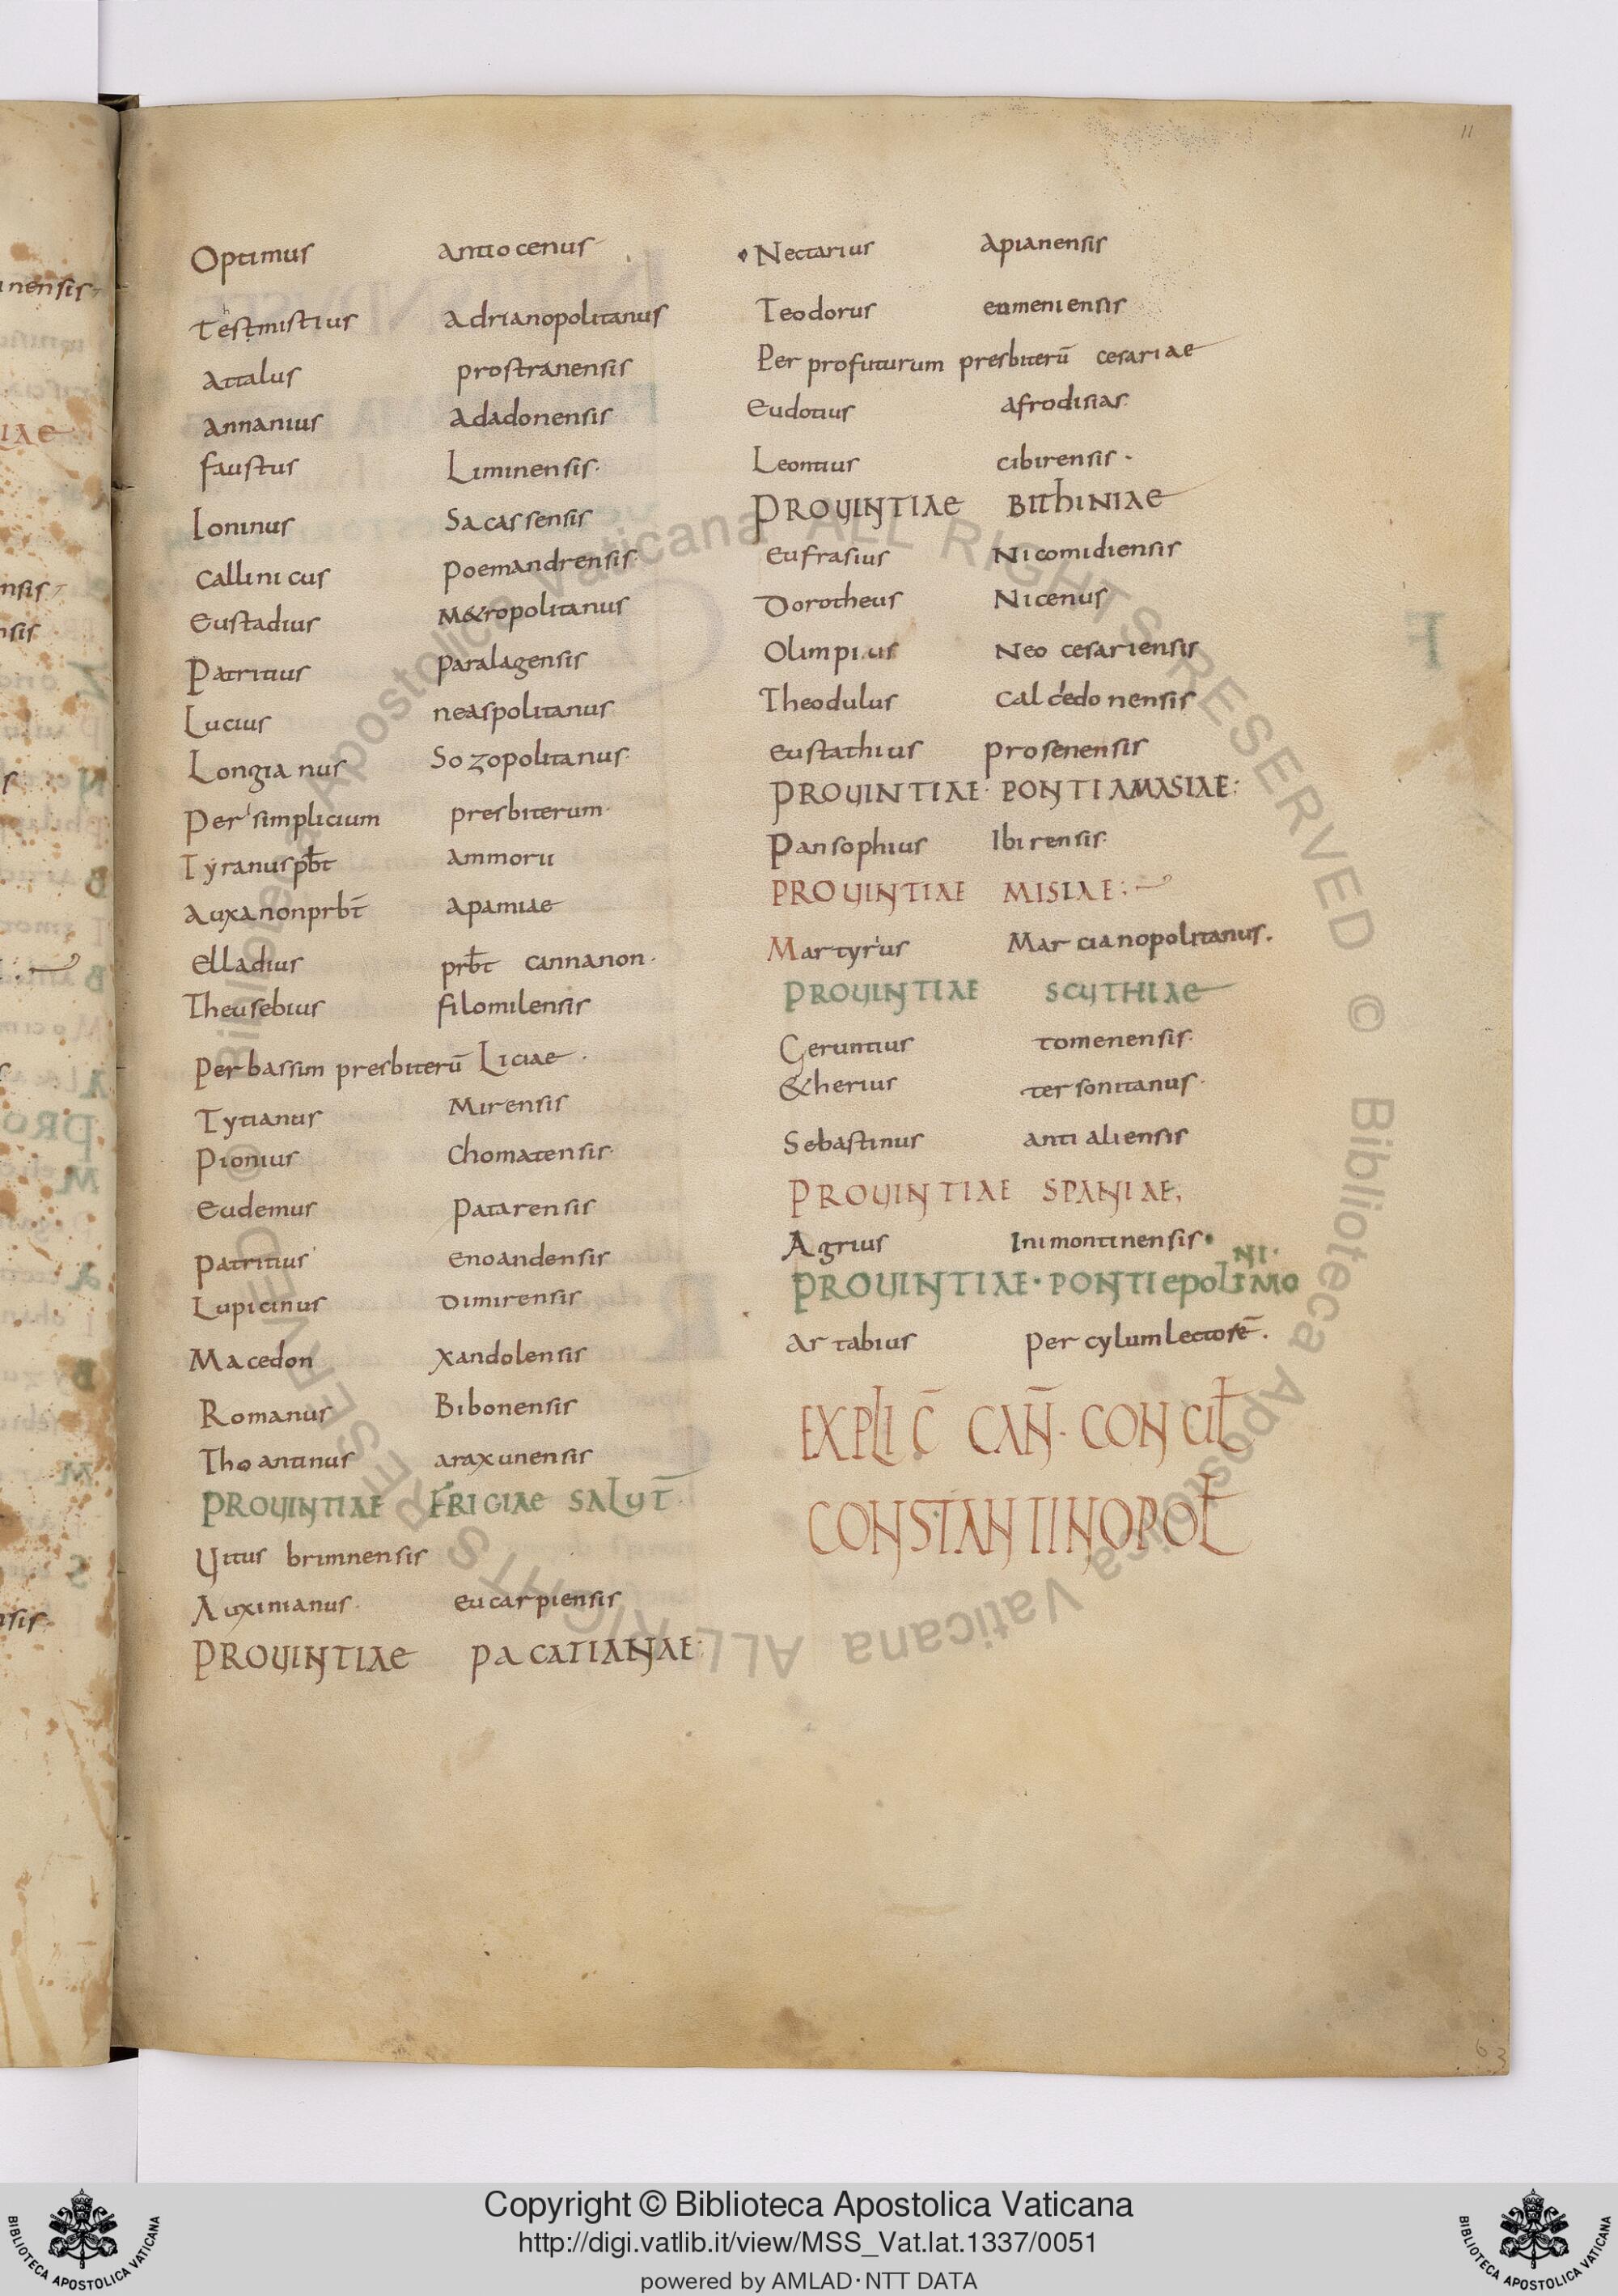 11
Optimus antiocenus
Testmistius adrianopolitanus
attalus prostranensis
annanius adadonensis
faustus Liminensis.
Loninus Sacassensis
callinicus poemandrensis.
Eustadius M&ropolitanus
Patritius paralagensis
Lucius neaspolitanus
Longianus Sozopolitanus.
Per simplicium presbiterum.
Tyranus pbt ammorii
auxanon prbt apamiae
elladius prbt cannanon.
Theusebius filomilensis
per bassim presbiterū Liciae.
Tytianus Mirensis
Pionius Chomatensis.
Eudemus Patarensis
patritius enoandensis
Lupicinus Dimirensis
Macedon Xandolensis
Romanus Bibonensis
Thoantinus araxunensis
PROVINTIAE FRIGIAE SALUT̄.
Vitus brimnensis
Auxinianus. eucarpiensis
PROVINTIAE PACATIANAE:
Nectarius apianensis
Teodorus eumeniensis
Per profuturum presbiterū cesariae
Eudotius afrodisias.
Leontius cibirensis.
PROVINTIAE BITHINIAE
Eufrasius Nicomidiensis
Dorotheus Nicenus
Olimpius Neo cesariensis
Theodulus Calcedonensis
eustathius prosenensis
PROVINTIAE. PONTI AMASIAE:
Pansophius Ibirensis.
PROVINTIAE MISIAE:
Martyrius Marcianopolitanus.
PROVINTIAE SCYTHIAE
Geruntius tomenensis.
&herius tersonitanus.
Sebastinus antialiensis
PROVINTIAE SPANIAE,
Agrius Inimontinensis.
PROVINTIAE. PONTI epolimo
NI.
Artabius per cylum lectorē.
EXPLIC̄ CAN̄. CONCIL̄
CONSTANTINOPOL̄
63
Copyright © Biblioteca Apostolica Vaticana
http://digi.vatlib.it/view/MSS_Vat.lat.1337/0051
powered by AMLAD·NTT DATA
BIBLIOTECA APOSTOLICA VATICANA
BIBLIOTECA APOSTOLICA VATICANA
© Biblioteca Apostolica Vaticana ALL RIGHTS RESERVED © Biblioteca Apostolica Vaticana ALL RIGHTS RESERVED